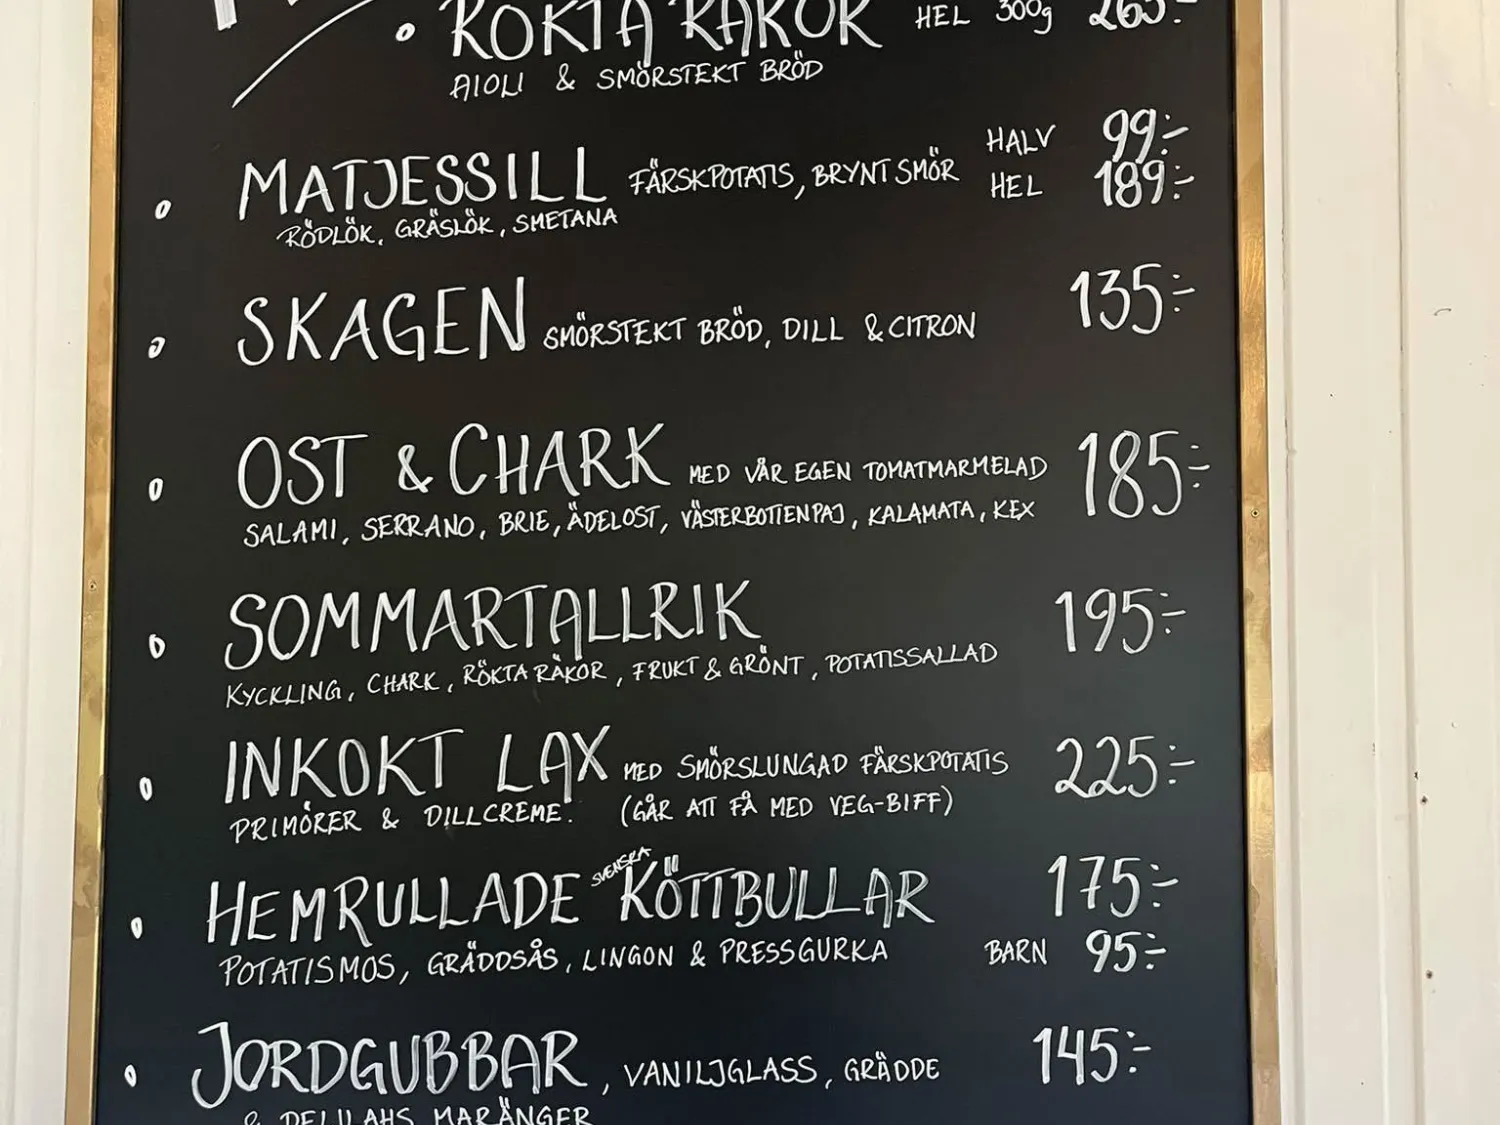 • RÖKTA RÄKOR HEL 300g 265:-
AIOLI & SMÖRSTEKT BRÖD
MATJESSILL FÄRSKPOTATIS, BRYNT SMÖR HALV 99:-
HEL 189:-
RÖDLÖK, GRÄSLÖK, SMETANA
SKAGEN SMÖRSTEKT BRÖD, DILL & CITRON 135:-
OST & CHARK MED VÅR EGEN TOMATMARMELAD 185:-
SALAMI, SERRANO, BRIE, ÄDELOST, VÄSTERBOTTENPAJ, KALAMATA, KEX
SOMMARTALLRIK 195:-
KYCKLING, CHARK, RÖKTA RÄKOR, FRUKT & GRÖNT, POTATISSALLAD
INKOKT LAX MED SMÖRSLUNGAD FÄRSKPOTATIS 225:-
PRIMÖRER & DILLCREME. (GÅR ATT FÅ MED VEG-BIFF)
HEMRULLADE SVENSKA KÖTTBULLAR 175:-
POTATISMOS, GRÄDDSÅS, LINGON & PRESSGURKA BARN 95:-
JORDGUBBAR, VANILJGLASS, GRÄDDE 145:-
& DELILAHS MARÄNGER